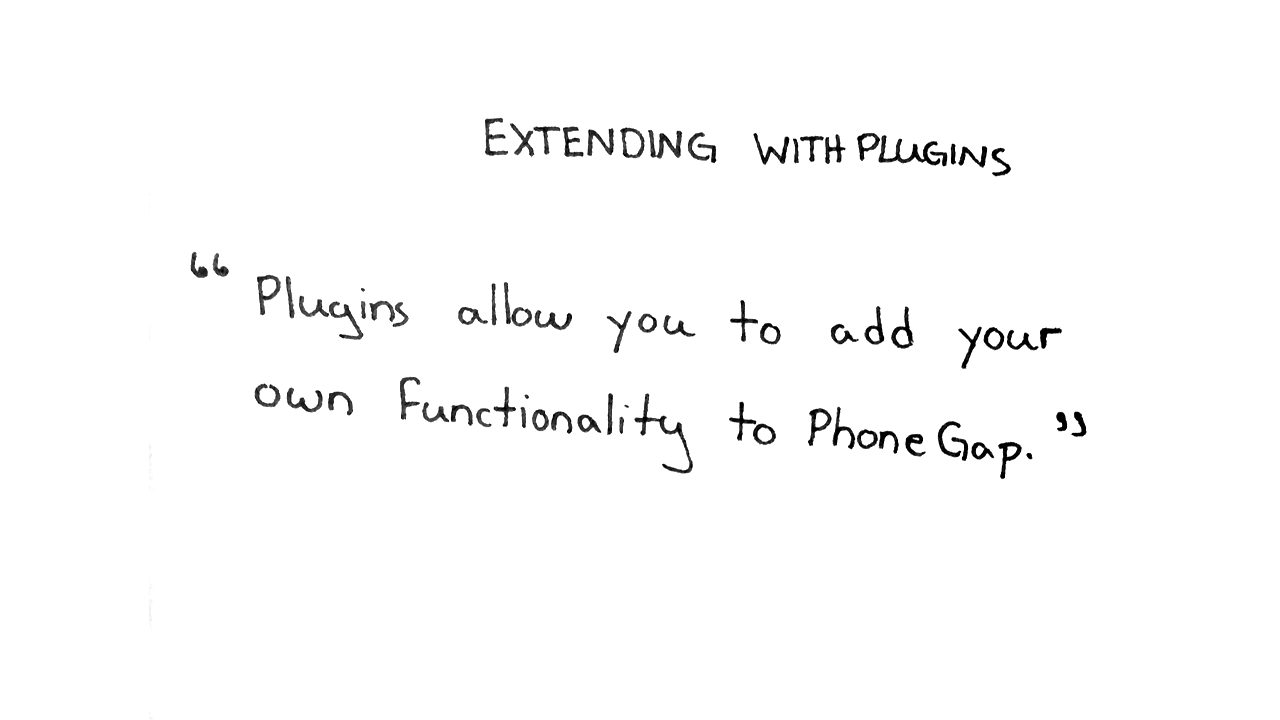 EXTENDING WITH PLUGINS
“Plugins allow you to add your
own functionality to PhoneGap.”